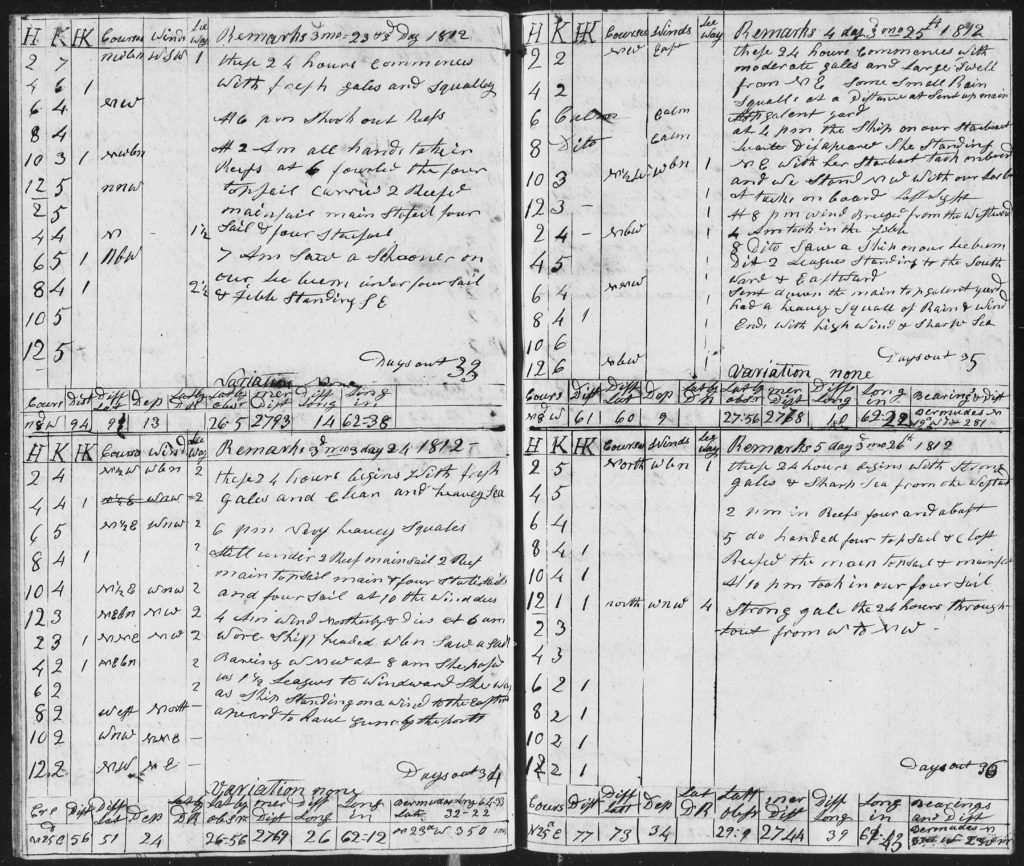 H K HK Courses Winds Lee Way Remarks 3 mo 23d 2d Day 1812
2 7 NWbN WSW 1 these 24 hours Commences
4 6 1 with fresh gales and Squalley
6 4 NW
8 4 At 6 pm Shook out Reefs
10 3 1 NWbN At 2 Am all hands take in
12 5 NNW Reefs at 6 fourled the four
2 5 topsail Carried 2 Reefd
mainsail main Stasail four
4 4 N - 1½ Sail & four Staesail
6 5 1 NbW 7 Am Saw a Schooner on
8 4 1 2½ our lee beem under four Sail
10 5 & Jibb Standing SE
12 5 -
Days out 33
Variation none
Cours Dist Diff Latt Dep Latt by DR Latt by obsr mer Diff Diff Long Long in
N 8 W 94 13 26-5 2793 14 62-38
H K HK Cours Wind Lee Way Remarks 3d mo 3 day 24 1812-
2 4 N½W WbN 2 these 24 hours begins With fresh
4 4 1 WNW 2 gales and Clear and heavey Sea
6 5 N½E WNW 2 6 pm very heavey Squales
8 4 1 2 Still under 2 Reef mainsail 2 Reef
main topsail main & four State Sails
10 4 N½E WNW 2 and four Sail at 10 the Wind dies
12 3 NEbN NW 2 4 Am wind Northerly & dies at 6 am
2 3 1 NNE NW 2 Wore Ship headed WbN Saw a Sail
4 2 1 NEbN 2 Bareing WNW at 8 am She pasd
6 2 2 us 1½ Leagues to Windward She was
8 2 West North - a Ship Standing on a wind to the Eastward
apeard to have Guns by the ports
10 2 WNW NNE -
12 2 NW NE -
Days out 34
Variation none
Cors Dist Diff Latt Dep Latt by DR Latt by obsr mer Dist Diff Long Long in Bermudas Long 64-33
Latt. 32-22
N 25 E 56 51 24 26-56 2769 26 62-12 N 23d W 350
H K HK Courses Winds Lee Way Remarks 4 day 3 mo 25th 1812
2 2 NW East these 24 hours Commences with
moderate gales and large Swell
4 2 from NE Some Small Rain
Squalls at a Distance at Sent up main
6 Calm Calm galent yard
8 Dito Calm at 4 pm the Ship on our Starboard
Disapeard She Standing
10 3 N½W WbN 1 NE With her Starbort tack onboard
and we Stand NW With our
12 3 - 1 tacks on board
1 At 8 pm wind Breezd from the Westward
2 4 - NbW 1 4 Am took in the Jibb
4 5 1 8 Dito Saw a Ship on our lee beem
Dist 2 Leagues Standing to the South
Ward & Eastward
6 4 NNW 1 Sent down the main topgalent yard
8 4 1 1 had a heavey Squall of Rain & Wind
10 6 Ends With high Wind & Sharp Sea
12 6 NbW Days out 35
Variation none
Cours Dist Diff Latt Dep Latt by DR Latt by obsr mer Dist Diff Long Long in Bearing & Dist
N 8 W 61 60 9 27-56 2718 40 62-22 Bermudas N
19d W Dist 281
H K HK Courses Winds Lee Way Remarks 5 day 3d mo 26th 1812
2 5 North WbN 1 these 24 hours begins with Strong
4 5 gales & Sharp Sea from the Westward
6 4 2 pm in Reefs four and abaft
8 4 1 5 do handed four topsail & Cloft
10 4 1 Reefd the main topsail & mainsail
At 10 pm took in our four Sail
12 1 1 North WNW 4 Strong gale the 24 hours through
2 3 tout from W to NW -
4 3
6 2 1
8 2 1
10 2 1
12 2 1 Days out 36
Cours Dist Diff Latt Dep Latt DR Latt obsr mer Dist Diff Long Long in Bearings and Dist
N 25d E 77 73 34 29-9 2744 39 62-43 Bermudas N
W 230